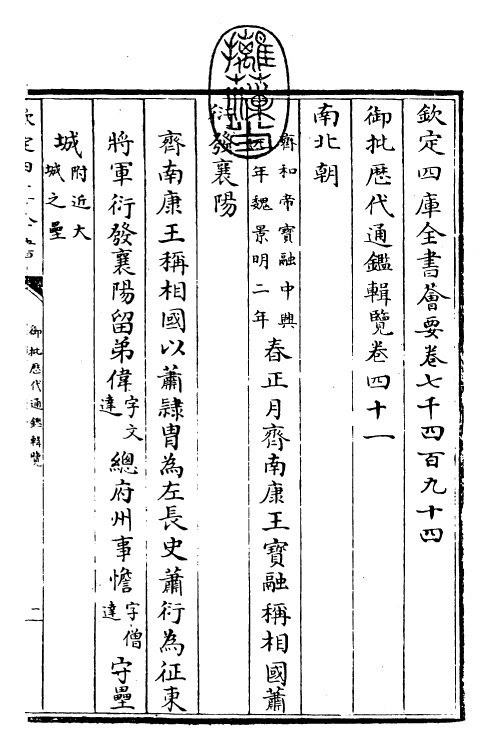 欽定四庫全書薈要卷七千四百九十四
御批厯代通鑑輯覽卷四十一
南北朝
齊和帝寶融中興
年魏景明二年
春正月齊南康王寶融稱相國蕭
衍發襄陽
齊南康王稱相國以蕭隷胄為左長史蕭衍為征東
將軍衍發襄陽留弟偉字文達總府州事憺字僧達守壘
城附近大城之壘
御批厯代通鑑輯覽
二